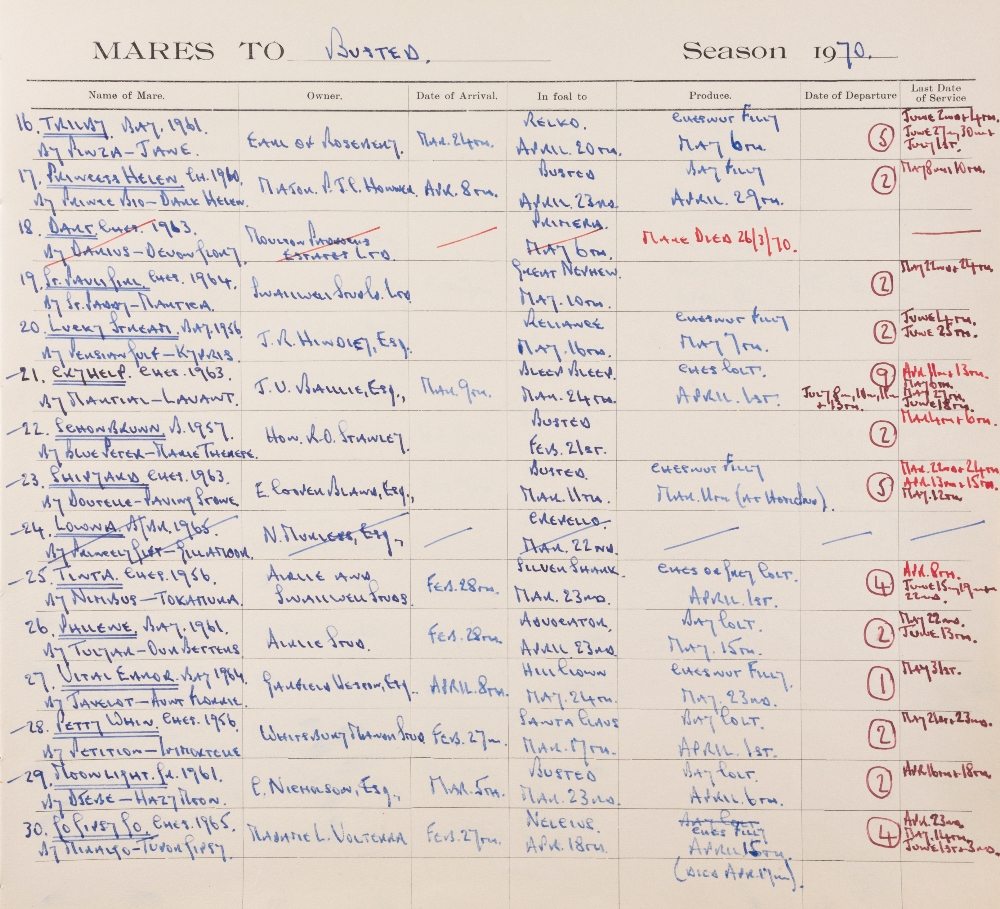 MARES TO BUSTED. Season 1970.
Name of Mare. Owner. Date of Arrival. In foal to Produce. Date of Departure Last Date of Service
16. TRILBY. BAY. 1961. RELKO. CHESNUT FILLY JUNE 2ND & 4TH.
EARL OF ROSEBERY. MAR. 24TH. (5) JUNE 27TH, 30TH &
BY PINZA – JANE. APRIL. 20TH. MAY 6TH. JULY 1ST.
17. PRINCESS HELEN CH. 1960. BUSTED BAY FILLY MAY 8TH & 10TH.
MAJOR. P.J.C. APR. 8TH. (2)
BY PRINCE BIO – DARK HELEN. APRIL. 23RD. APRIL. 29TH.
18. DART. CHES. 1963. PRIMERA.
MOULTON PADDOCKS MARE DIED 26/3/70.
BY DARIUS – DEVON GLORY. ESTATES LTD. MAY 6TH.
19. ST. PAULI GIRL. CHES. 1964. GREAT NEPHEW. MAY 22ND & 24TH
SWALLWELL STUDS. LTD (2)
BY ST. PADDY – MAY. 10TH.
20. LUCKY STREAM. BAY. 1956 RELIANCE CHESNUT FILLY JUNE 4TH.
J. R. HINDLEY, ESQ. (2) JUNE 25TH.
BY PERSIAN GULF – KYPRIS. MAY. 16TH. MAY 7TH.
21. CRYHELP. CHES. 1963. BLEEP BLEEP. CHES COLT. (9) APR. 11TH & 13TH.
J. U. BAILLIE, ESQ., MAR. 9TH. MAY 6TH.
BY MARTIAL – LAVANT. MAR. 24TH. APRIL. 1ST. JULY 8TH, 10TH, 11TH MAY 27TH.
& 13TH. JUNE 18TH.
22. SCHONBRUNN. B. 1957. BUSTED MAR 4TH & 6TH.
HON. R.O. STANLEY. (2)
BY BLUE PETER – MARIE THERESE. FEB. 21ST.
23. SHIPYARD CHES. 1963 BUSTED CHESNUT FILLY MAR. 22ND & 24TH
E. COOPER BLAND, ESQ., (5) APR. 13TH & 15TH.
BY DOUTELLE – PAVING STONE. MAR. 11TH. MAR. 11TH (AT HOME). MAY. 12TH.
24. LOWNA. B/BR. 1965. CREPELLO.
N. MURLESS, ESQ.,
BY PRINCELY GIFT – GILLAMOOR. MAR. 22ND.
25. TINTA. CHES. 1956. AIRLIE AND SILVER SHARK. CHES OR GREY COLT. APR. 8TH.
FEB. 28TH. (4) JUNE 15TH, 19TH &
BY NIMBUS – TOKAMURA. SWALLWELL STUDS. MAR. 23RD. APRIL. 1ST. 22ND.
26. PHILENE. BAY. 1961. ADVOCATOR. BAY COLT. MAY 22ND.
AIRLIE STUD. FEB. 28TH. (2) JUNE 13TH.
BY TULYAR – OUR BETTERS. APRIL 23RD. MAY. 15TH.
27. VITAL ERROR. BAY 1964. HILL CLOWN CHESNUT FILLY. MAY 31ST.
GARFIELD WESTON, ESQ. APRIL. 8TH. (1)
BY JAVELOT – AUNT FLORRIE. MAY. 24TH. MAY. 23RD.
28. PETTY WHIN. CHES. 1956 SANTA CLAUS BAY COLT. MAY 21ST & 23RD.
WHITSBURY MANOR STUD FEB. 27TH. (2)
BY PETITION – IMMORTELLE MAR. 17TH. APRIL. 1ST.
29. MOONLIGHT. GR. 1961. BUSTED BAY COLT. APR 16TH & 18TH.
C. NICHOLSON, ESQ., MAR. 5TH. (2)
BY DJEBE – HAZY MOON. MAR. 23RD. APRIL. 6TH.
30. GO GIPSY GO. CHES. 1965. NELCIUS. BAY COLT APR. 23RD.
MADAME L. VOLTERRA. FEB. 27TH. CHES FILLY (4) MAY. 14TH.
BY MIRALGO – TUDOR GIPSY. APR. 18TH. APRIL 15TH. JUNE 1ST & 3RD.
(DIED APR. 17TH).